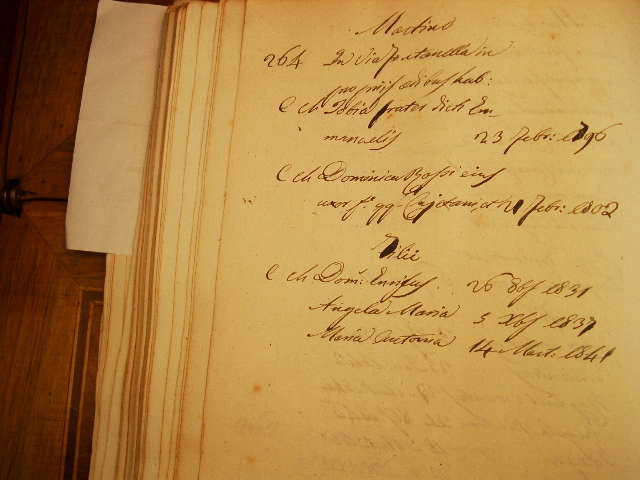 Martino
264 In Via puteanella in
propriis ædibus hab:
C Ch Tobia frater dicti Em
manuelis 23 Febr: 1796
C Ch Dominica Rossi eius
uxor f.a qq. Cajetani, et 21 Febr: 1802
Filii
C Ch Dom: 26 8bs 1831
Angela Maria 5 Xbs 1837
Maria Antonia 14 Mart: 1841